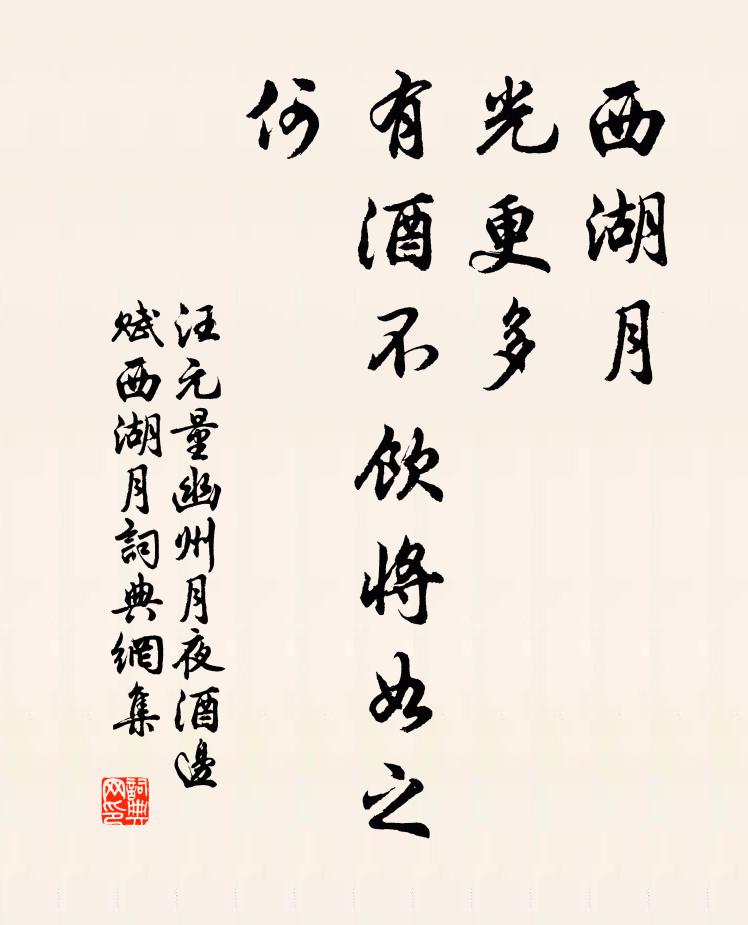 西湖月
光更多
有酒不飲將如之
何
汪元量幽州月夜酒邊
賦西湖月詞典網集
詞典
网印